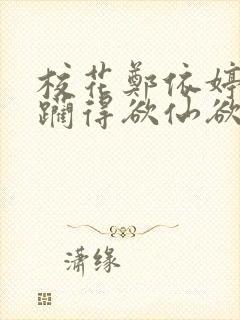 校花鄭依婷
躙得欲仙欲
潇缘